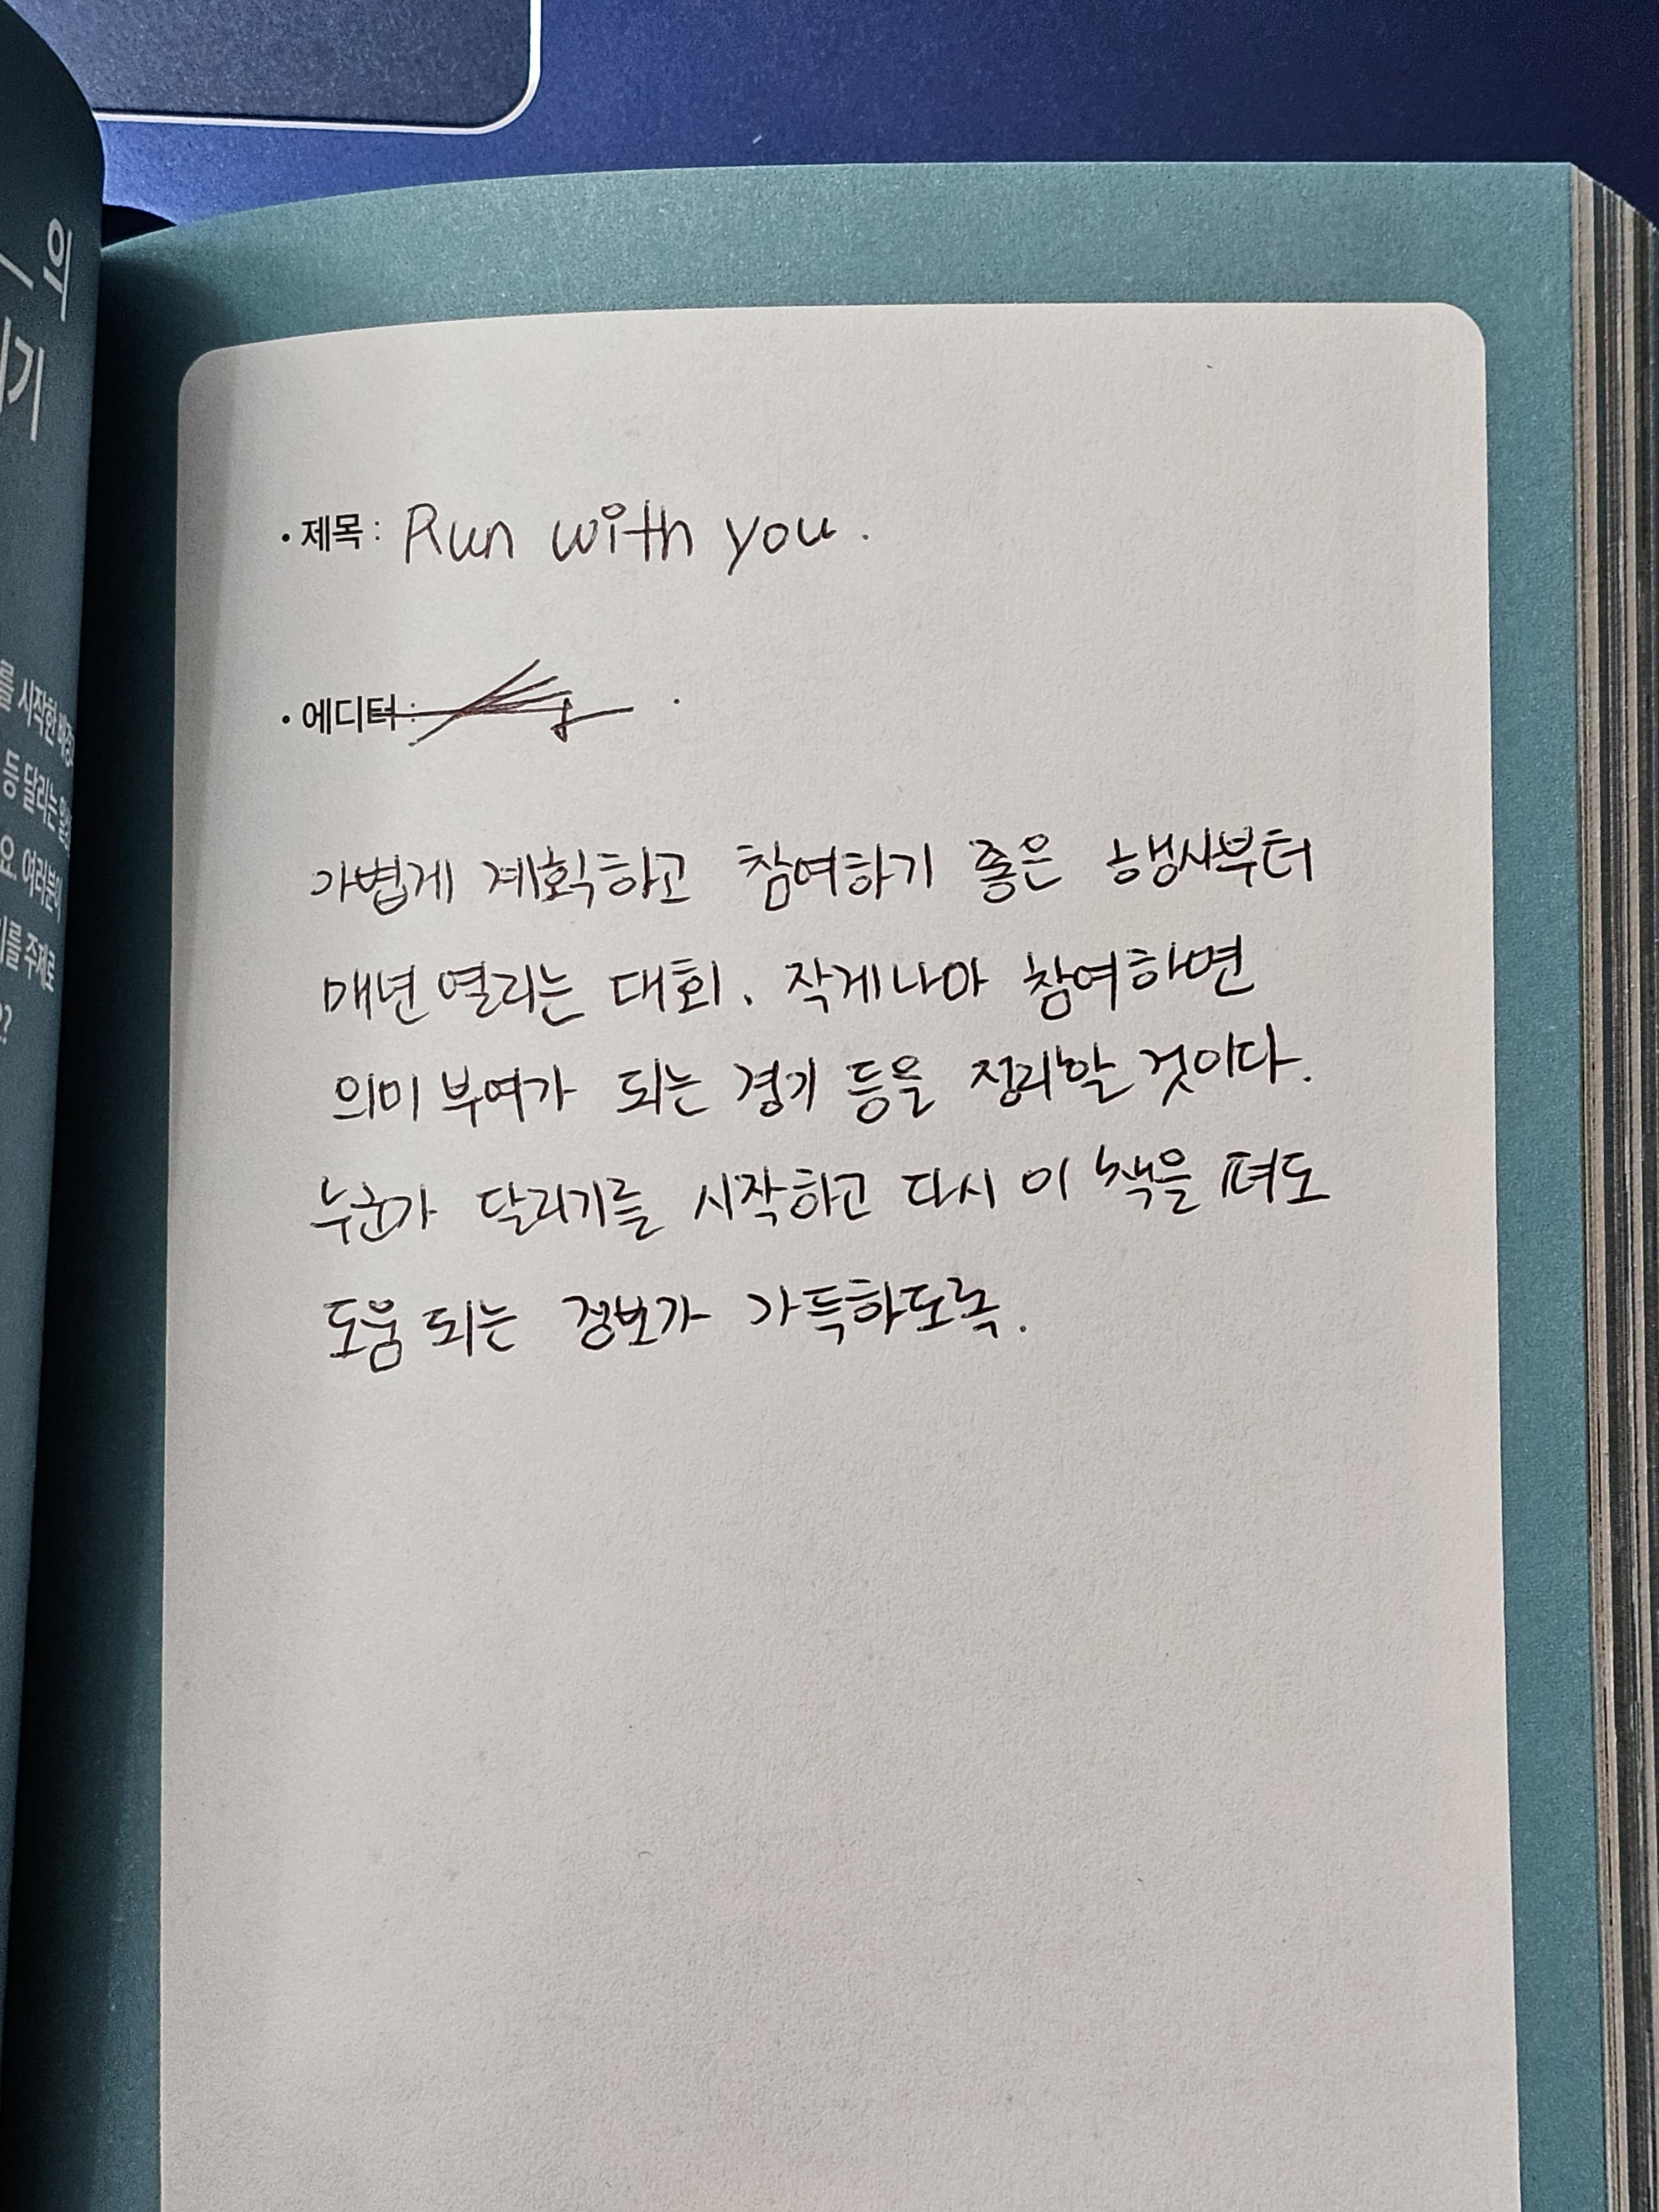 의
기
를 시작한 배경
등 달리는
요. 여러분이
를 주제로
?
• 제목 : Run with you .
• 에디터 :
가볍게 계획하고 참여하기 좋은 행사부터
매년 열리는 대회. 작게나마 참여하면
의미 부여가 되는 경기 등을 정리할 것이다.
누군가 달리기를 시작하고 다시 이 책을 펴도
도움 되는 정보가 가득하도록.